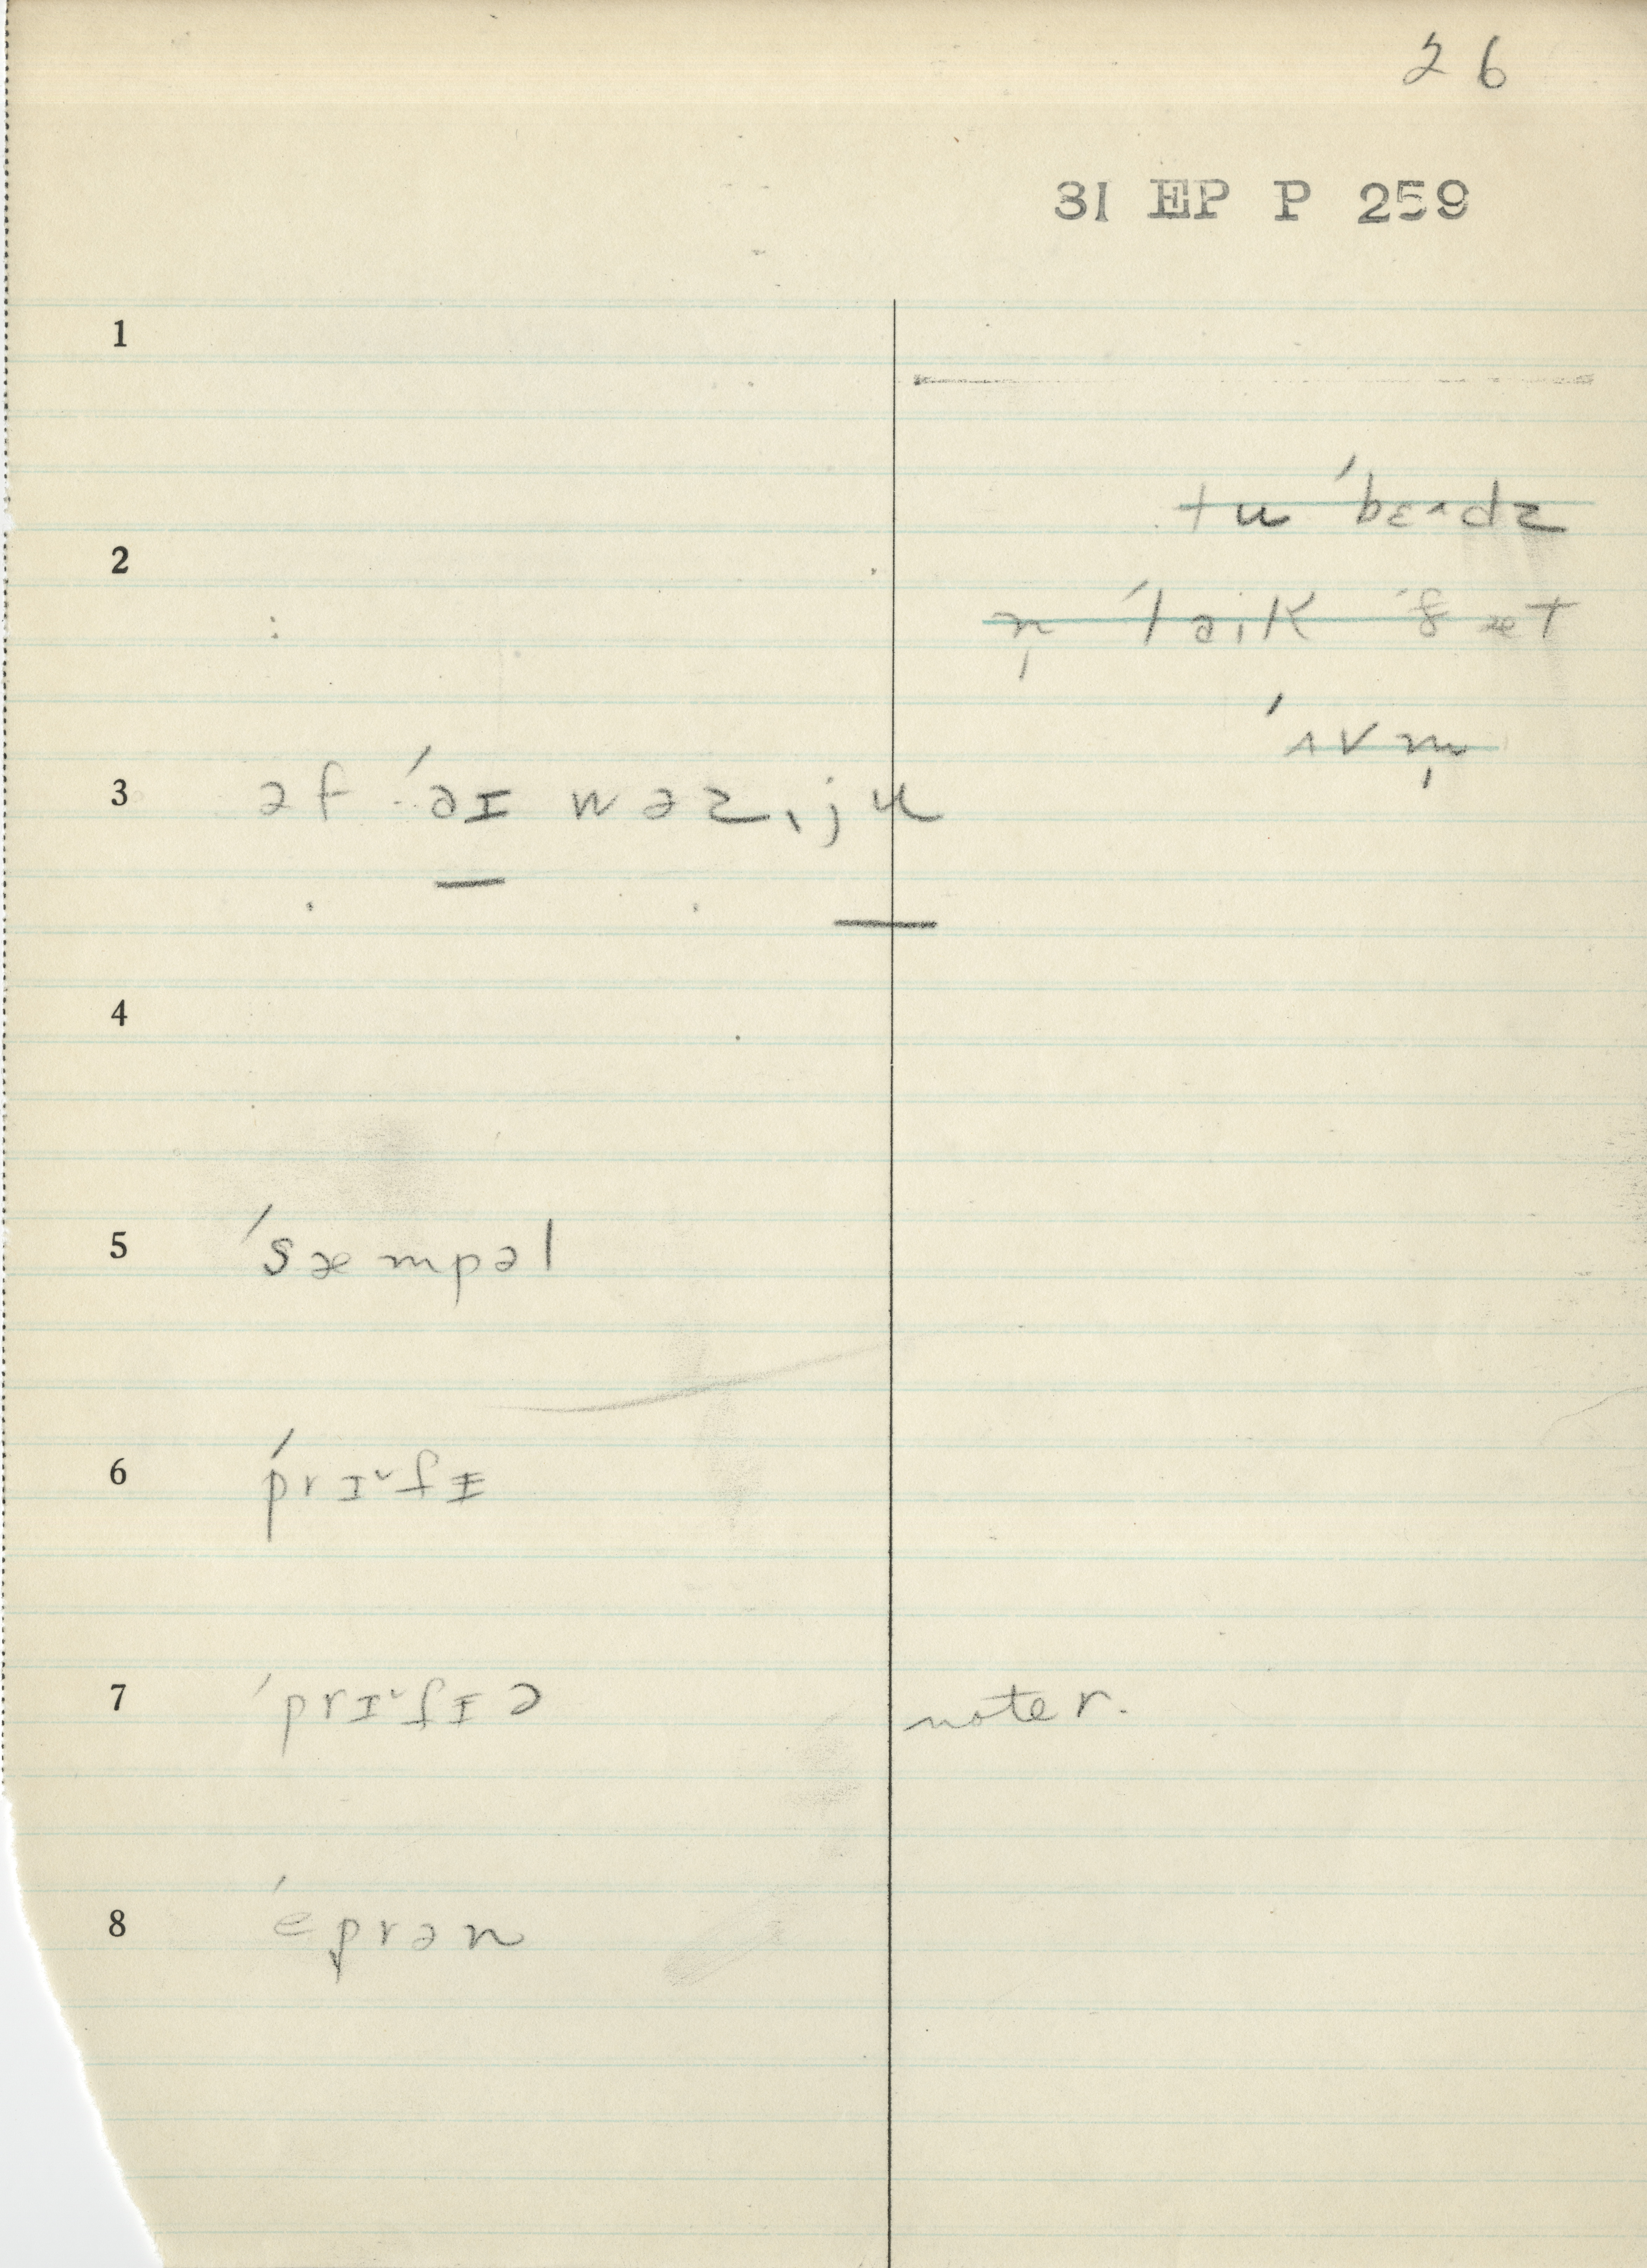 26
31 EP P 259
1
tu ˈbɛ˄dz
2
n̩ ˈlaik ˈðæt
ˈʌv m̩
3 əf ˈəɪ wəz ˌju
4
5 ˈsæmpəl
6 ˈprɪ˅ʃɪ
7 ˈprɪ˅ʃɪə noter.
8 ˈeprən